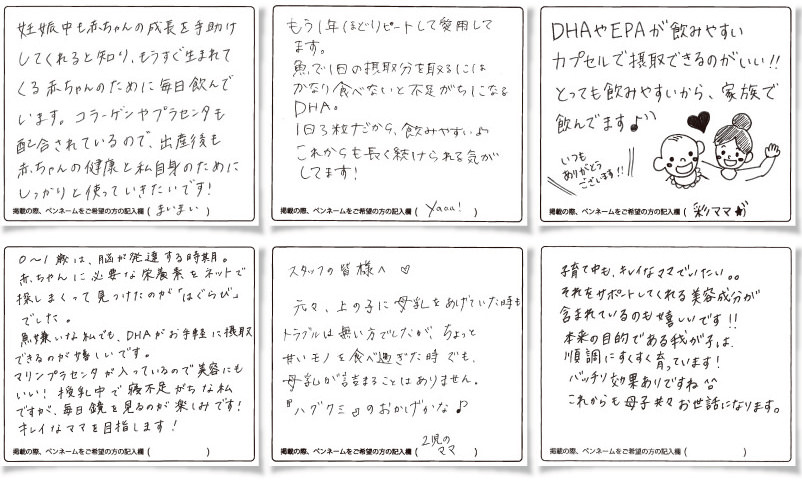 妊娠中も赤ちゃんの成長を手助け
してくれると知り、もうすぐ生まれて
くる赤ちゃんのために毎日飲んで
います。コラーゲンやプラセンタも
配合されているので、出産後も
赤ちゃんの健康と私自身のために
しっかりと使っていきたいです!
掲載の際、ペンネームをご希望の方の記入欄 ( まいまい )
もう1年ほどリピートして愛用して
ます。
魚で1日の摂取分を取るには
かなり食べないと不足がちになる
DHA。
1日3粒だから、飲みやすい♪
これからも長く続けられる気が
してます!
掲載の際、ペンネームをご希望の方の記入欄 ( Yaau! )
DHAやEPAが飲みやすい
カプセルで摂取できるのがいい!!
とっても飲みやすいから、家族で
飲んでます♪
いつも
ありがとう
ございます!!
掲載の際、ペンネームをご希望の方の記入欄 ( 彩ママ )
0〜1歳は、脳が発達する時期。
赤ちゃんに必要な栄養素をネットで
探しまくって見つけたのが「はぐらび」
でした。
魚嫌いな私でも、DHAがお手軽に摂取
できるのが嬉しいです。
マリンプラセンタが入っているので美容にも
いい! 授乳中で寝不足がちな私
ですが、毎日鏡を見るのが楽しみです!
キレイなママを目指します!
掲載の際、ペンネームをご希望の方の記入欄 ( )
スタッフの皆様へ ♡
元々、上の子に母乳をあげていた時も
トラブルは無い方でしたが、ちょっと
甘いモノを食べ過ぎた時でも、
母乳が詰まることはありません。
『ハグクミ』のおかげかな♪
2児の
ママ
掲載の際、ペンネームをご希望の方の記入欄 ( )
子育て中も、キレイなママでいたい。。
それをサポートしてくれる美容成分が
含まれているのも嬉しいです!!
本来の目的である我が子は、
順調にすくすく育っています!
バッチリ効果ありですね^^
これからも母子共々お世話になります。
掲載の際、ペンネームをご希望の方の記入欄 ( )